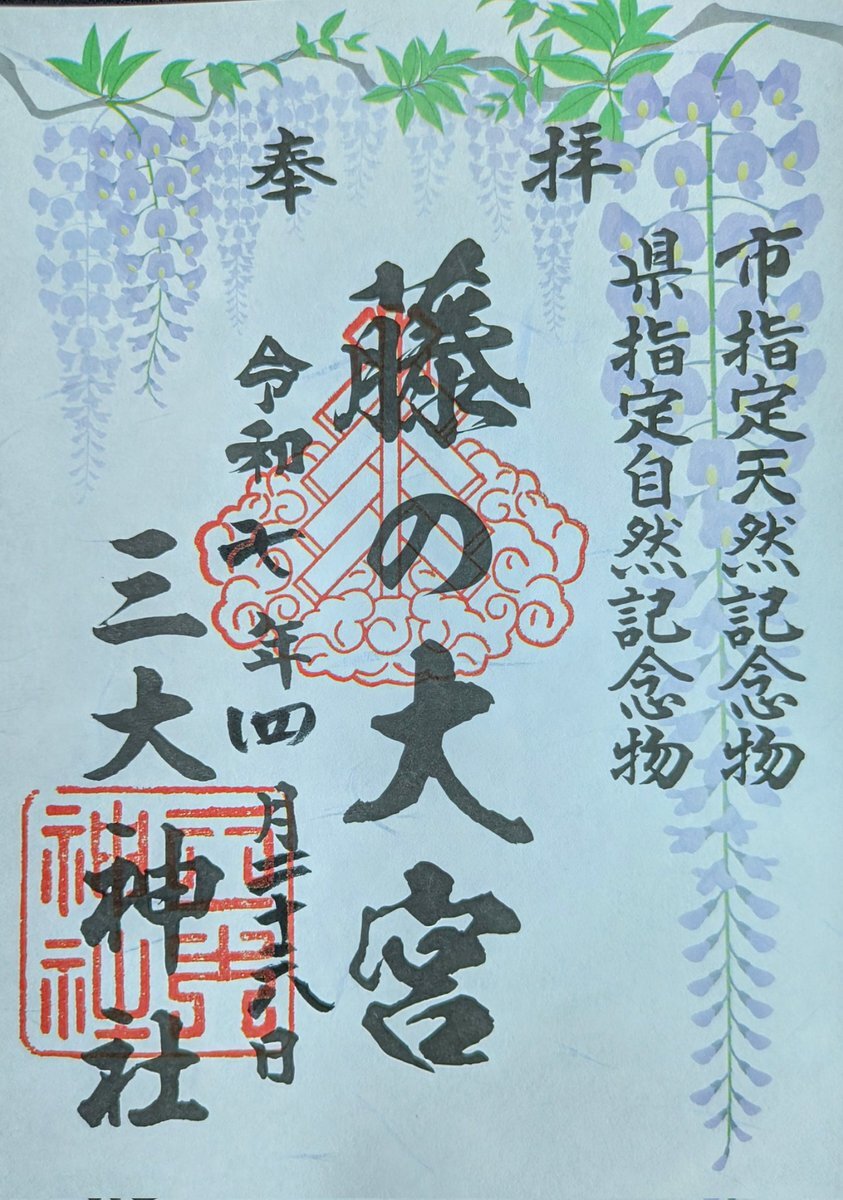 奉拝
市指定天然記念物
県指定自然記念物
藤の大宮
令和七年四月二十八日
三大神社
三大神社